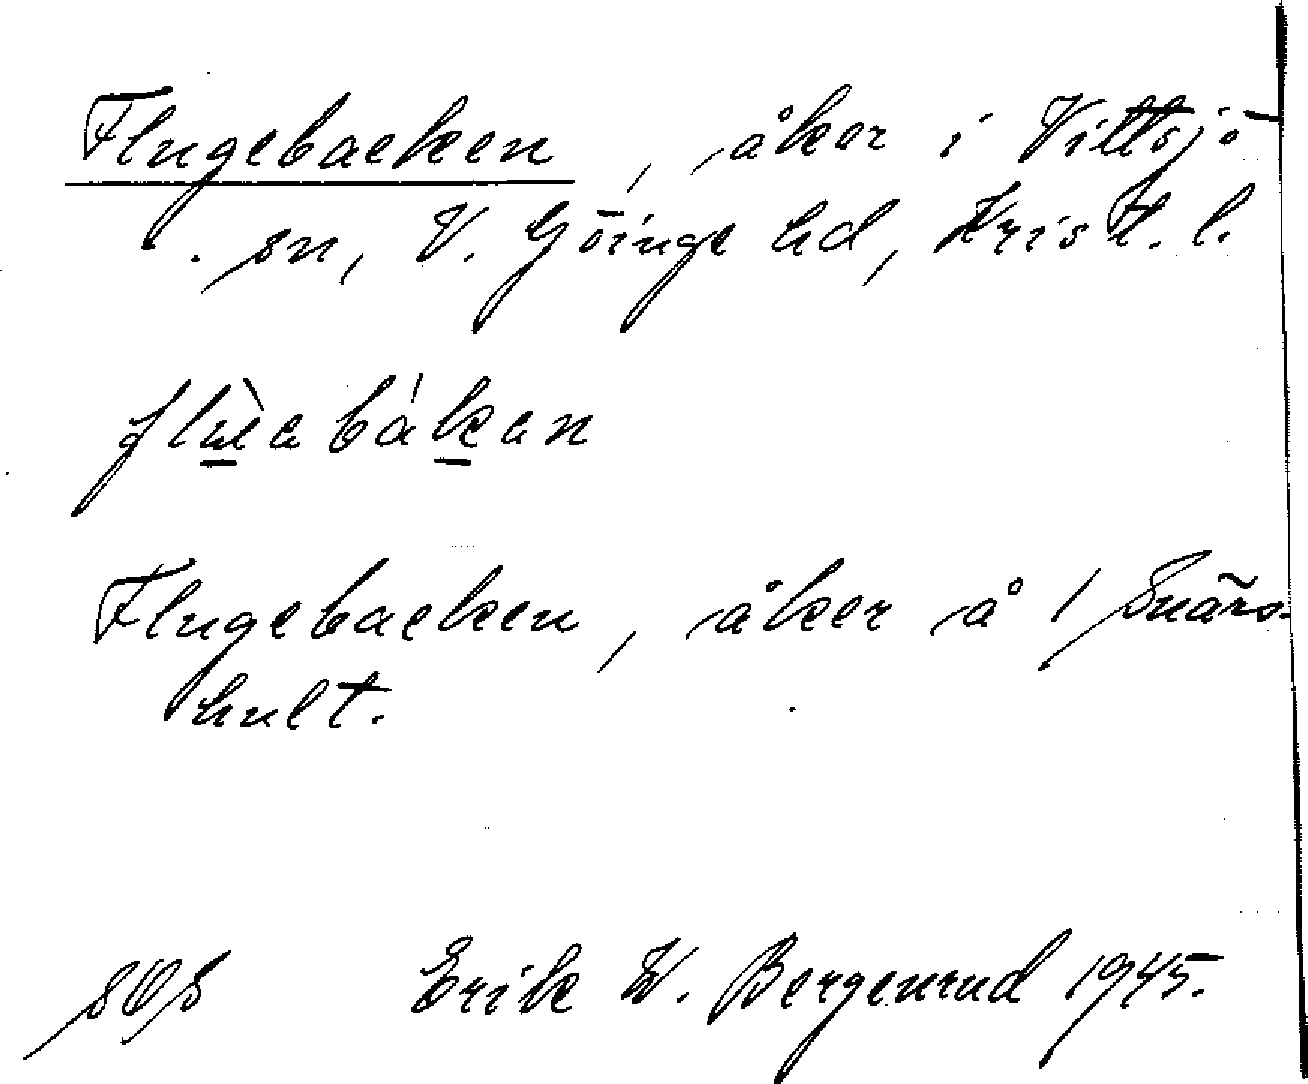 Flugebacken, åker i Vittsjö
sn, V. Göinge hd, Krist. l.
flùa bákan
Flugebacken, åker å 1 Snärs-
hult.
Erik W. Bergenrud 1945.